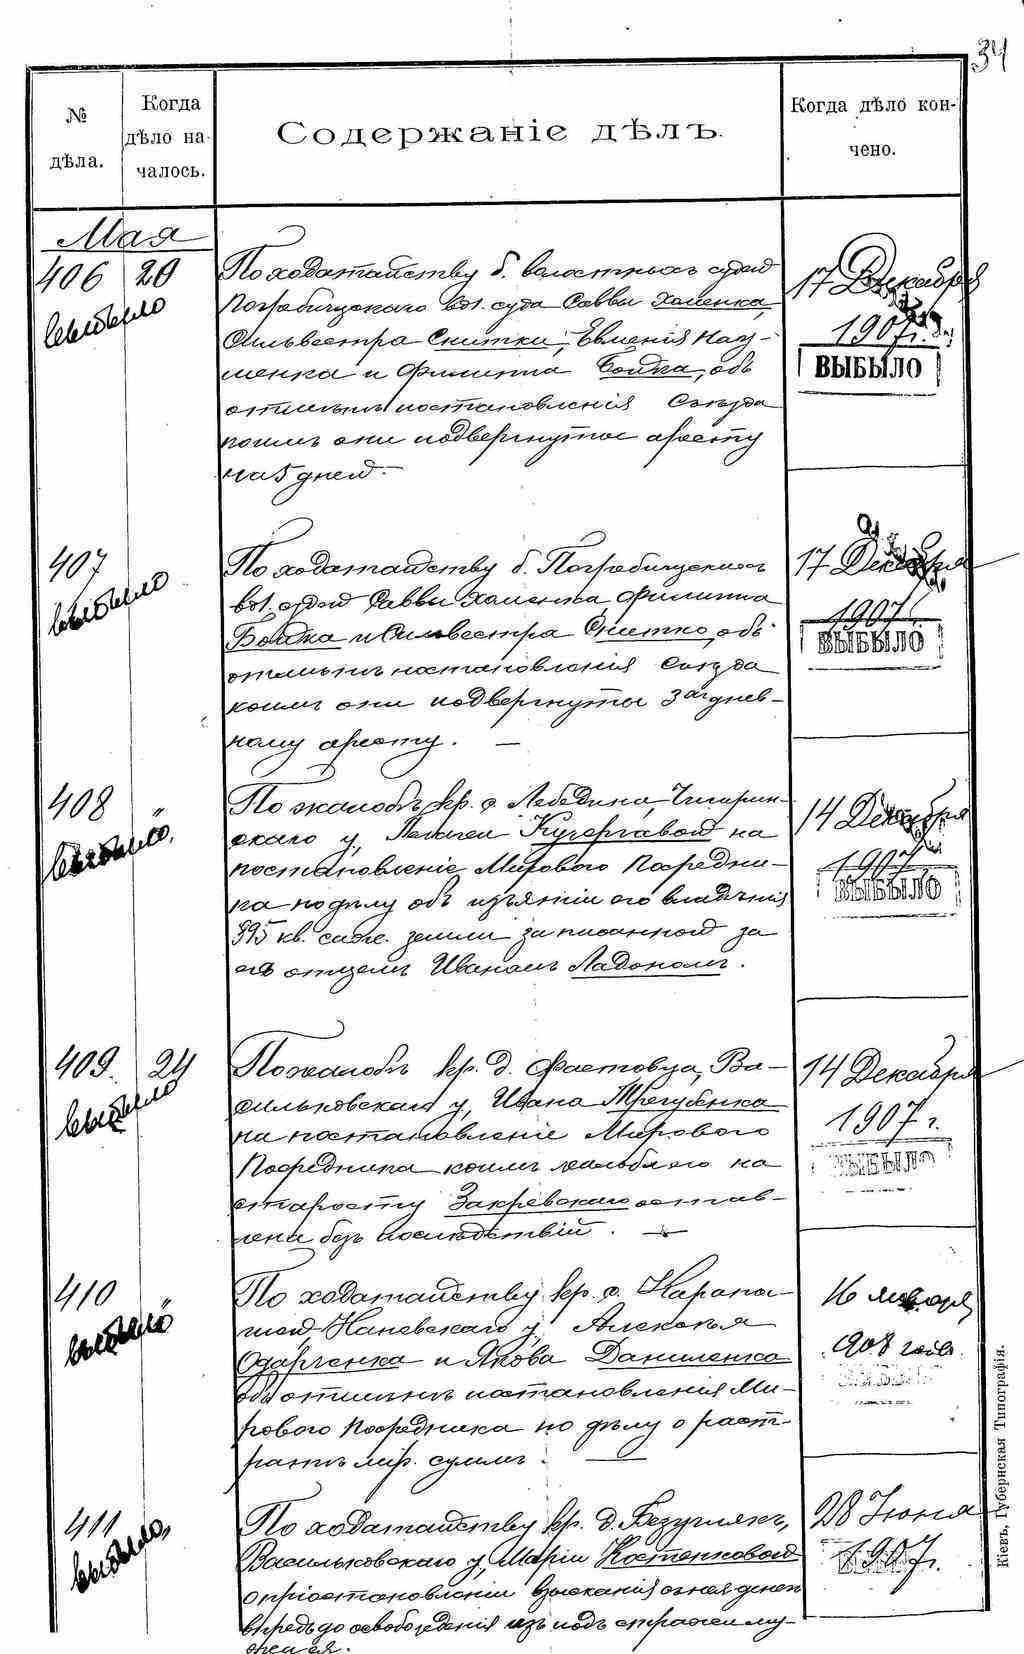 34
№ дѣла.
Когда дѣло началось.
Содержаніе дѣлъ.
Когда дѣло кончено.
Мая
406 20
выбыло
По ходатайству б. волостныхъ судей
Погребищскаго вол. суда Саввы Хоменка,
Сильвестра Снитки, Евмения Нау-
менка и Филиппа Бойка, объ
отмѣнѣ постановленія Съѣзда
коимъ они подвергнуты аресту
на 5 дней.
17 Декабря
1907 г.
ВЫБЫЛО
407
выбыло
По ходатайству б. Погребищскихъ
вол. судей Саввы Хоменка, Филиппа
Бойка и Сильвестра Снитко, объ
отмѣнѣ постановленія Съѣзда
коимъ они подвергнуты 3хъ днев-
ному аресту. —
17 Декабря
1907 г.
ВЫБЫЛО
408 "
выбыло,
По жалобѣ кр. с. Лебедина, Чигирин-
скаго у, Пелагеи Кучерявой на
постановленіе Мирового Посредни-
ка по дѣлу объ изъятіи его владѣнія
395 кв. саж. земли записанной за
ея отцемъ Иваномъ Ладономъ.
14 Декабря
1907
ВЫБЫЛО
409. 24
выбыло
По жалобѣ кр. д. Фастовца, Ва-
сильковскаго у, Ивана Трегубенка
на постановленіе Мирового
Посредника коимъ жалоба его на
старосту Закревскаго остав-
лена безъ послѣдствій. —
14 Декабря
1907 г.
ВЫБЫЛО
410 "
выбыло
По ходатайству кр. с. Карапы-
шей Каневскаго у, Алексѣя
Одарченка и Якова Даниленка
объ отмѣнѣ постановленія Ми-
рового Посредника по дѣлу о раст-
ратѣ мір. суммъ. —
16 января
1908 года
411
выбыло,
По ходатайству кр. д. Безугляк,
Васильковскаго у, Маріи Костенковой
о пріостановленіи взысканія съ нея денегъ
впредь до освобожденія изъ подъ стражи му-
жа ея.
28 Іюня
1907 г.
Кіевъ, Губернская Типографія.